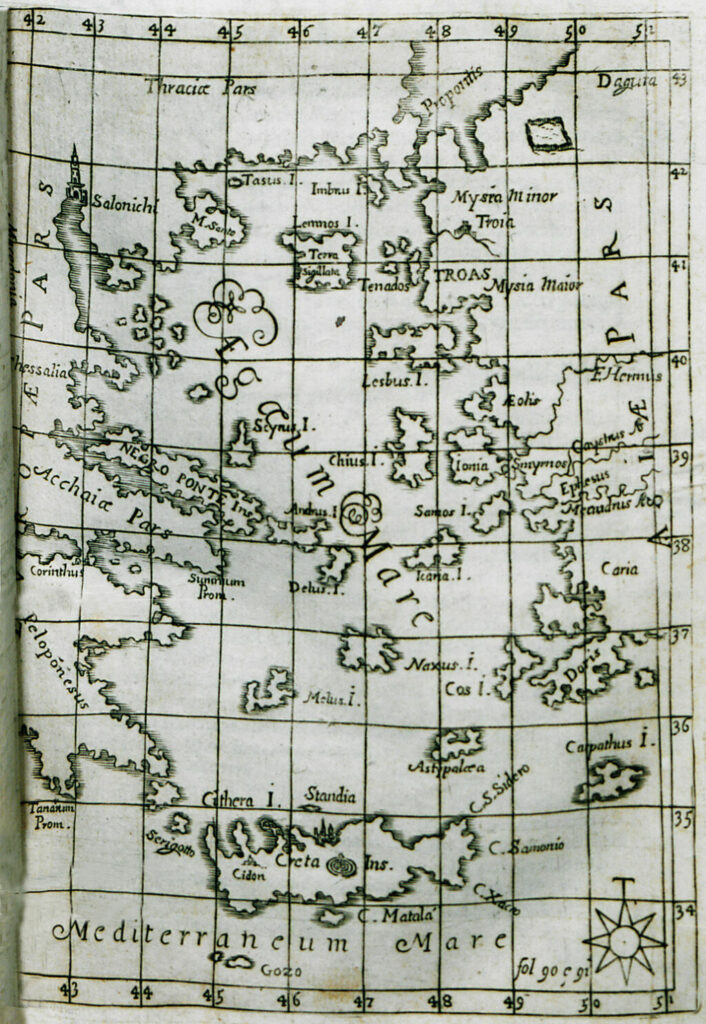 42 43 44 45 46 47 48 49 50 51
Thraciæ Pars
Propontis
Daguta
43
42
Tasus. I.
Imbrus I.
Salonichi
M. Santo
Lemnos I.
Terra
Sigillata
Mysia Minor
Troia
41
Tenados
TROAS
Mysia Maior
PARS
PARS
40
Thessalia
Lesbus. I.
Æolis
Hermus
Ægæum Mare
Scyrus I.
NEGRO PONTE Ins
Chius. I.
Ionia
Smyrnos
Caystrus
39
Ephesus
Acchaiæ Pars
Andrus. I
Samos I.
38
Corinthus
Sunnium
Prom.
Delus. I.
Icaria. I.
Caria
37
Peloponesus
Naxus. I.
Cos I.
Doris
Melus. I.
36
Astypalæa
Carpathus I.
Tanarum
Prom.
Cithera I.
Standia
C. S. Sidero
35
Serigotto
Cidon
Creta Ins.
C. Samonio
C. Xacro
C. Matala
34
Mediterraneum Mare
Gozo
fol 90 e 91
43 44 45 46 47 48 49 50 51